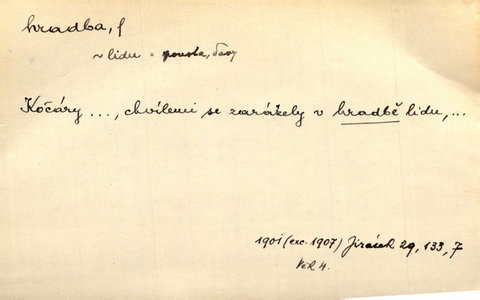 hradba, f
~ lidu = pousta, davy
Kočáry ..., chvílemi se zarážely v hradbě lidu, ...
1901 (exc. 1907) Jirásek 29, 133, 7
Věk 4.